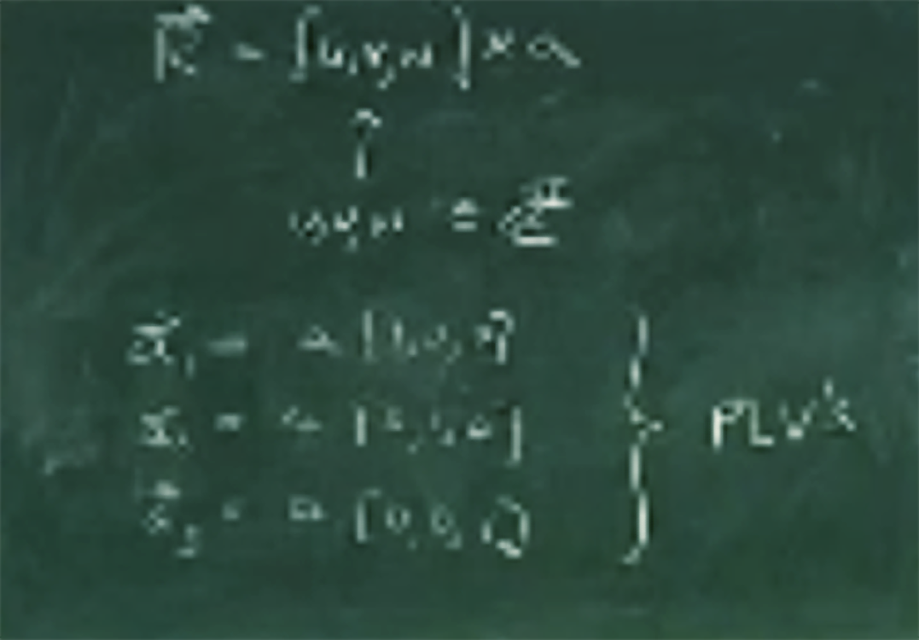 R⃗ = [u,v,w] × a
↑
u,v,w = ℤ
a⃗₁ = a [1,0,0]
= a [0,1,0]
= a [0,0,1]
} PLV's